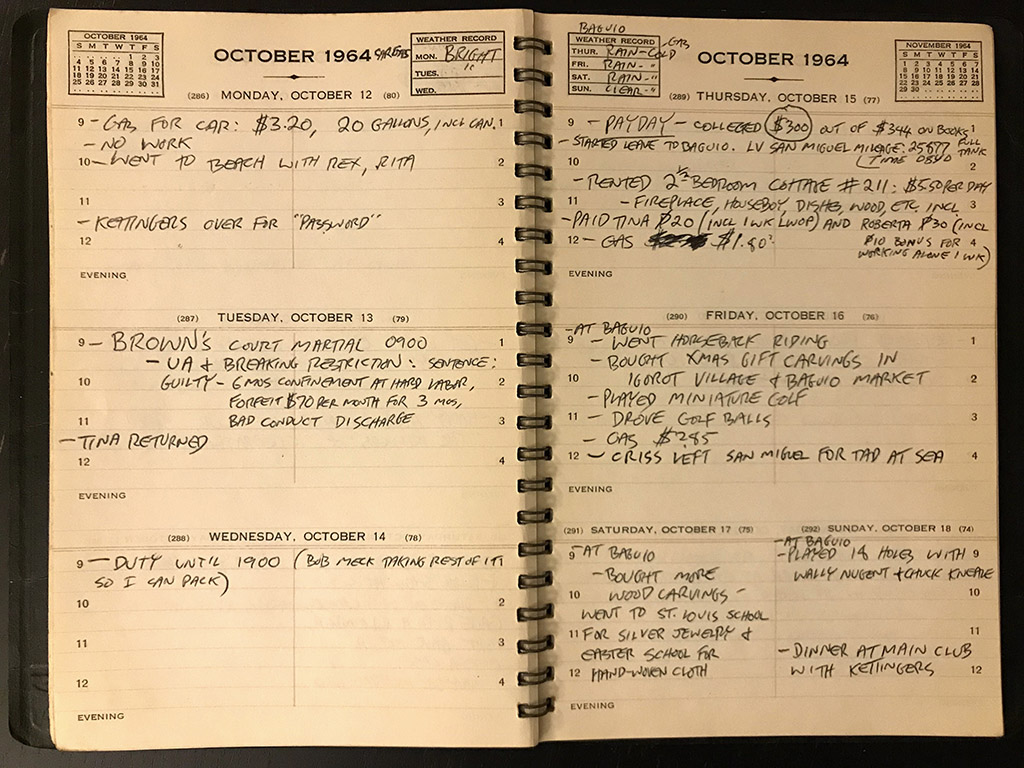 OCTOBER 1964
S M T W T F S
1 2 3
4 5 6 7 8 9 10
11 12 13 14 15 16 17
18 19 20 21 22 23 24
25 26 27 28 29 30 31
OCTOBER 1964
WEATHER RECORD
MON. BRIGHT
TUES. "
WED.
(286) MONDAY, OCTOBER 12 (80)
9 - GAS FOR CAR: $3.20, 20 GALLONS, INCL CAN. 1
- NO WORK
10 - WENT TO BEACH WITH REX, RITA 2
11 3
- KETTINGERS OVER FOR "PASSWORD"
12 4
EVENING
(287) TUESDAY, OCTOBER 13 (79)
9 - BROWN'S COURT MARTIAL 0900 1
- UA & BREAKING RESTRICTION: SENTENCE:
10 GUILTY - 6 MOS CONFINEMENT AT HARD LABOR, 2
FORFEIT $70 PER MONTH FOR 3 MOS,
11 BAD CONDUCT DISCHARGE 3
- TINA RETURNED
12 4
EVENING
(288) WEDNESDAY, OCTOBER 14 (78)
9 - DUTY UNTIL 1900 (BOB MECK TAKING REST OF IT 1
SO I CAN PACK)
10 2
11 3
12 4
EVENING
BAGUIO
WEATHER RECORD
THUR. RAIN-COLD
FRI. RAIN- "
SAT. RAIN- "
SUN. CLEAR- "
OCTOBER 1964
NOVEMBER 1964
S M T W T F S
1 2 3 4 5 6 7
8 9 10 11 12 13 14
15 16 17 18 19 20 21
22 23 24 25 26 27 28
29 30
(289) THURSDAY, OCTOBER 15 (77)
9 - PAYDAY - COLLECTED $300 OUT OF $344 ON BOOKS 1
- STARTED LEAVE TO BAGUIO. LV SAN MIGUEL MILEAGE: 25677 FULL TANK
10 (TIME 0840) 2
- RENTED 2 1/2 BEDROOM COTTAGE # 211: $5.50 PER DAY
11 - FIREPLACE, HOUSEBOY, DISHES, WOOD, ETC. INCL 3
- PAID TINA $20 (INCL 1 WK LWOP) AND ROBERTA $30 (INCL
12 - GAS $1.80 $10 BONUS FOR 4
WORKING ALONE 1 WK)
EVENING
(290) FRIDAY, OCTOBER 16 (76)
- AT BAGUIO
9 - WENT HORSEBACK RIDING 1
- BOUGHT XMAS GIFT CARVINGS IN
10 IGOROT VILLAGE & BAGUIO MARKET 2
- PLAYED MINIATURE GOLF
11 - DROVE GOLF BALLS 3
- GAS $2.85
12 - CRISS LEFT SAN MIGUEL FOR TAD AT SEA 4
EVENING
(291) SATURDAY, OCTOBER 17 (75)
9 - AT BAGUIO
- BOUGHT MORE
10 WOOD CARVINGS -
WENT TO ST. LOUIS SCHOOL
11 FOR SILVER JEWELRY &
EASTER SCHOOL FOR
12 HAND-WOVEN CLOTH
EVENING
(292) SUNDAY, OCTOBER 18 (74)
- AT BAGUIO
- PLAYED 18 HOLES WITH 9
WALLY NUGENT & CHUCK KNEALE
10
11
- DINNER AT MAIN CLUB
WITH KETTINGERS 12